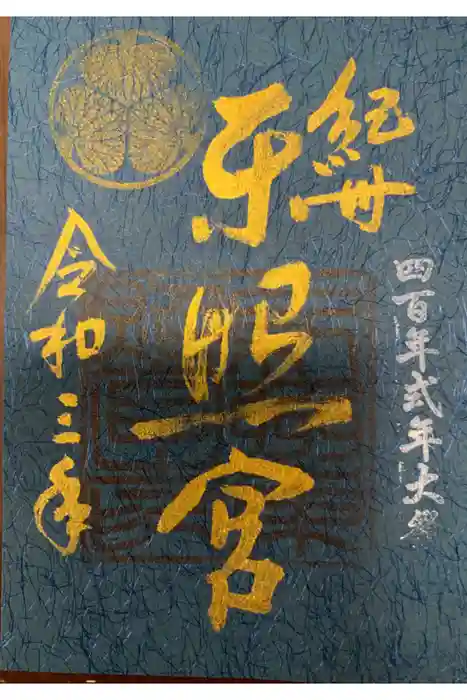 四百年式年大祭
紀州
東照宮
令和三年